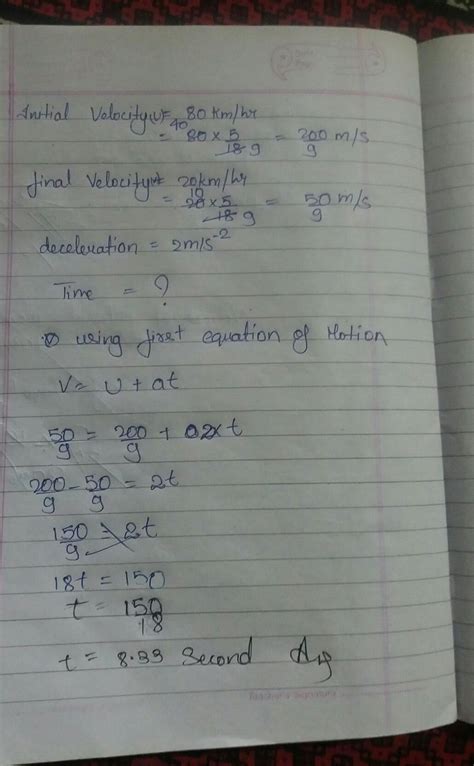 Initial Velocity(u)= 80 km/hr
= 80 40 × 5/18 9 = 200/9 m/s
final Velocity = 20km/hr
= 20 10 × 5/18 9 = 50/9 m/s
deceleration = 2m/s⁻²
Time = ?
using first equation of Motion
V= U + at
50/9 = 200/9 + 02x t
200/9 - 50/9 = 2t
150/9 = 2t
18t = 150
t = 150/18
t = 8.33 Second Ans